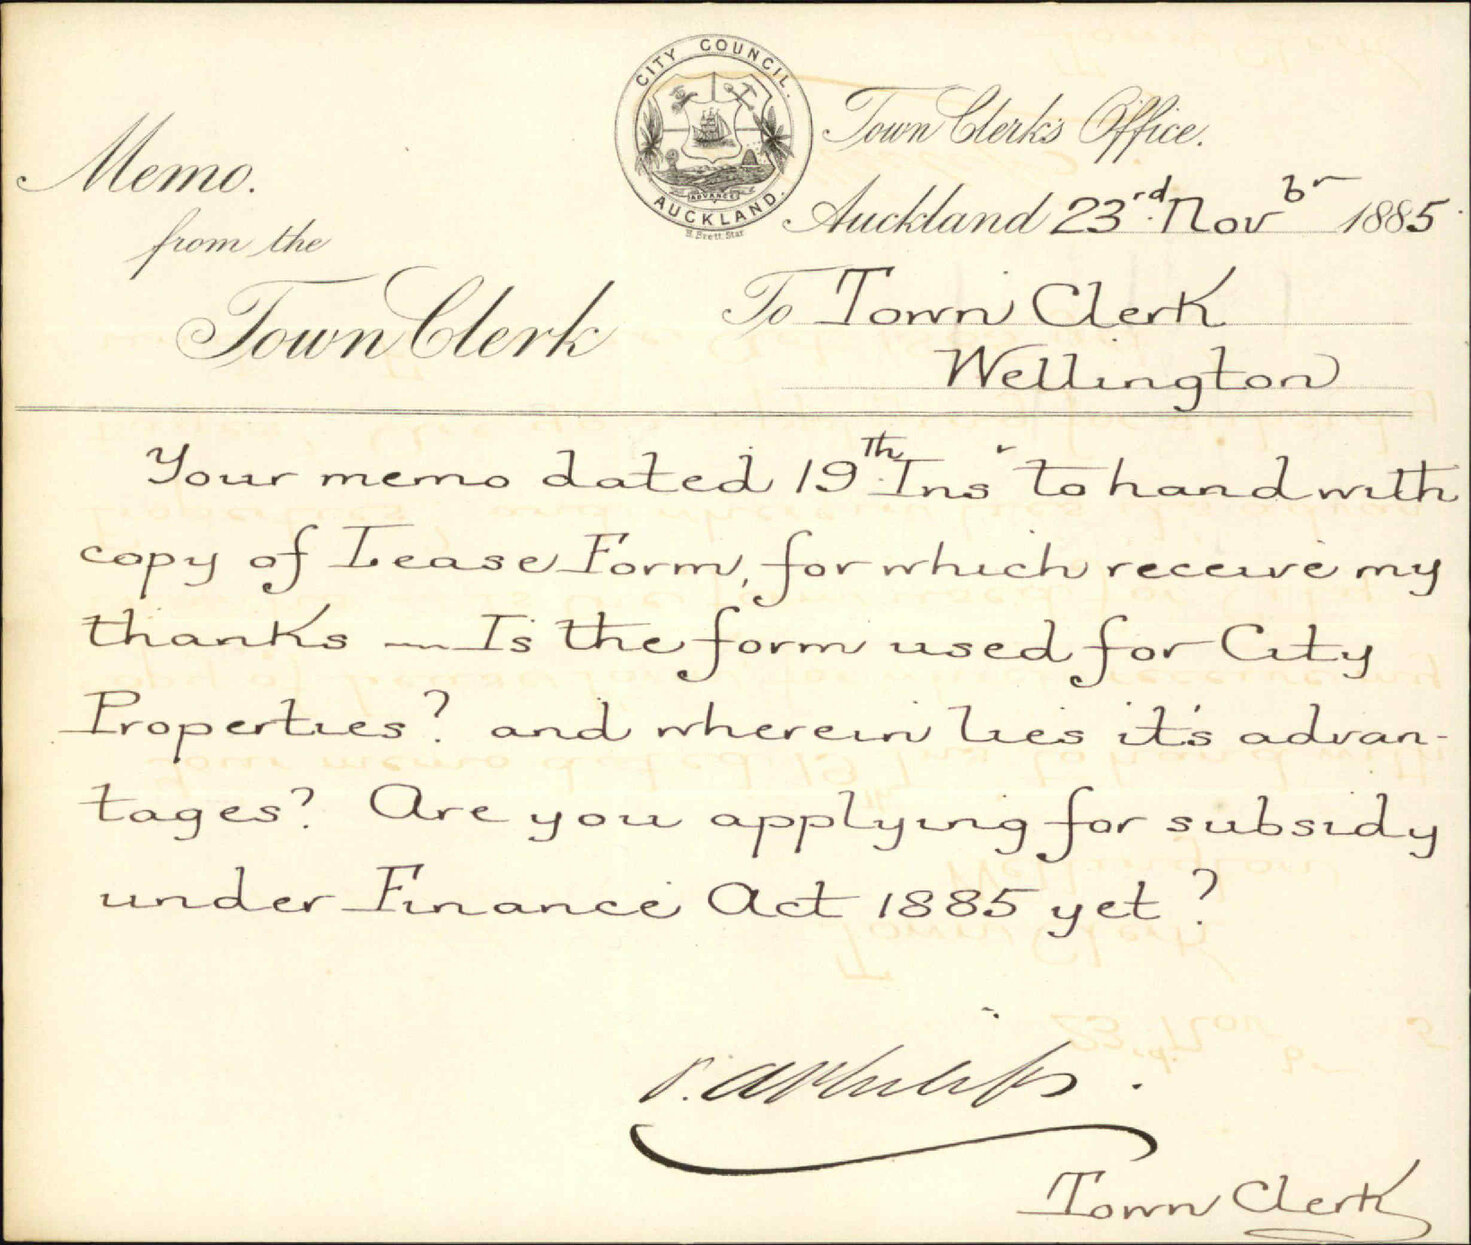 CITY COUNCIL.
ADVANCE
AUCKLAND.
H. Brett. Star
Memo.
from the
Town Clerk
Town Clerk's Office.
Auckland 23rd. Novbr 1885.
To Town Clerk
Wellington
Your memo dated 19th. Ins" to hand with
copy of Lease Form, for which receive my
thanks — Is the form used for City
Properties? and wherein lies it's advan-
tages? Are you applying for subsidy
under Finance Act 1885 yet?
P. A Philips.
Town Clerk